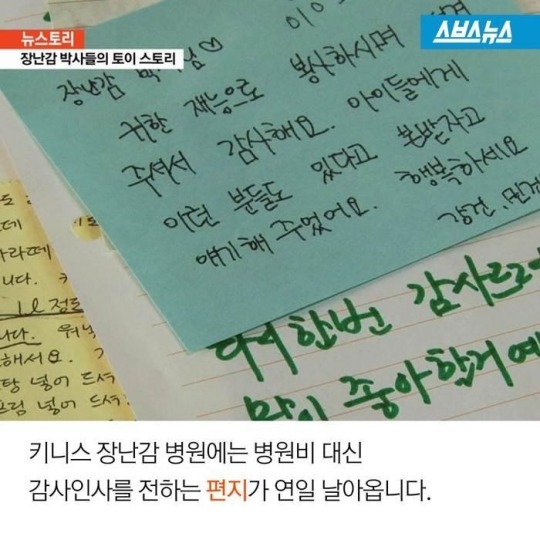 뉴스토리
장난감 박사들의 토이 스토리
스브스뉴스
장난감 박 님♡
귀한 재능으로 봉사하시며
주셔서 감사해요. 아이들에게
이런 분들도 있다고 본받자고
얘기해 주었어요. 행복하세요
다시한번 감사드
많이 좋아할거예
니다.
1l 정도
해서요.
넣어 드셔
넣어 드셔
키니스 장난감 병원에는 병원비 대신
감사인사를 전하는 편지가 연일 날아옵니다.